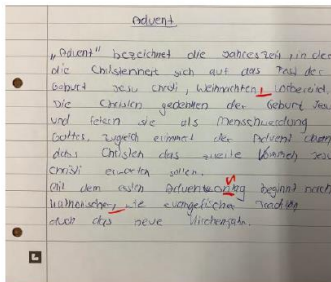 Advent
„Advent" bezeichnet die Jahreszeit, in der
die sich auf das Fest der
Geburt Jesu Christi, Weihnachten,
Die Christen gedenken der Geburt Jesu
und feiern sie als Menschwerdung
Gottes. Zugleich erinnert der Advent
dass Christen das zweite Jesu
Christi erwarten sollen.
Mit dem ersten beginnt nach
wie evangelischer
auch das neue Kirchenjahr.